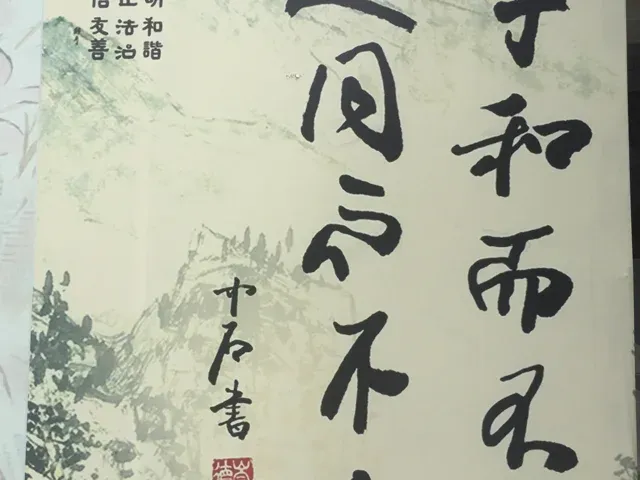 子和而不
人同而不
中石書
明和諧
正法治
信友善